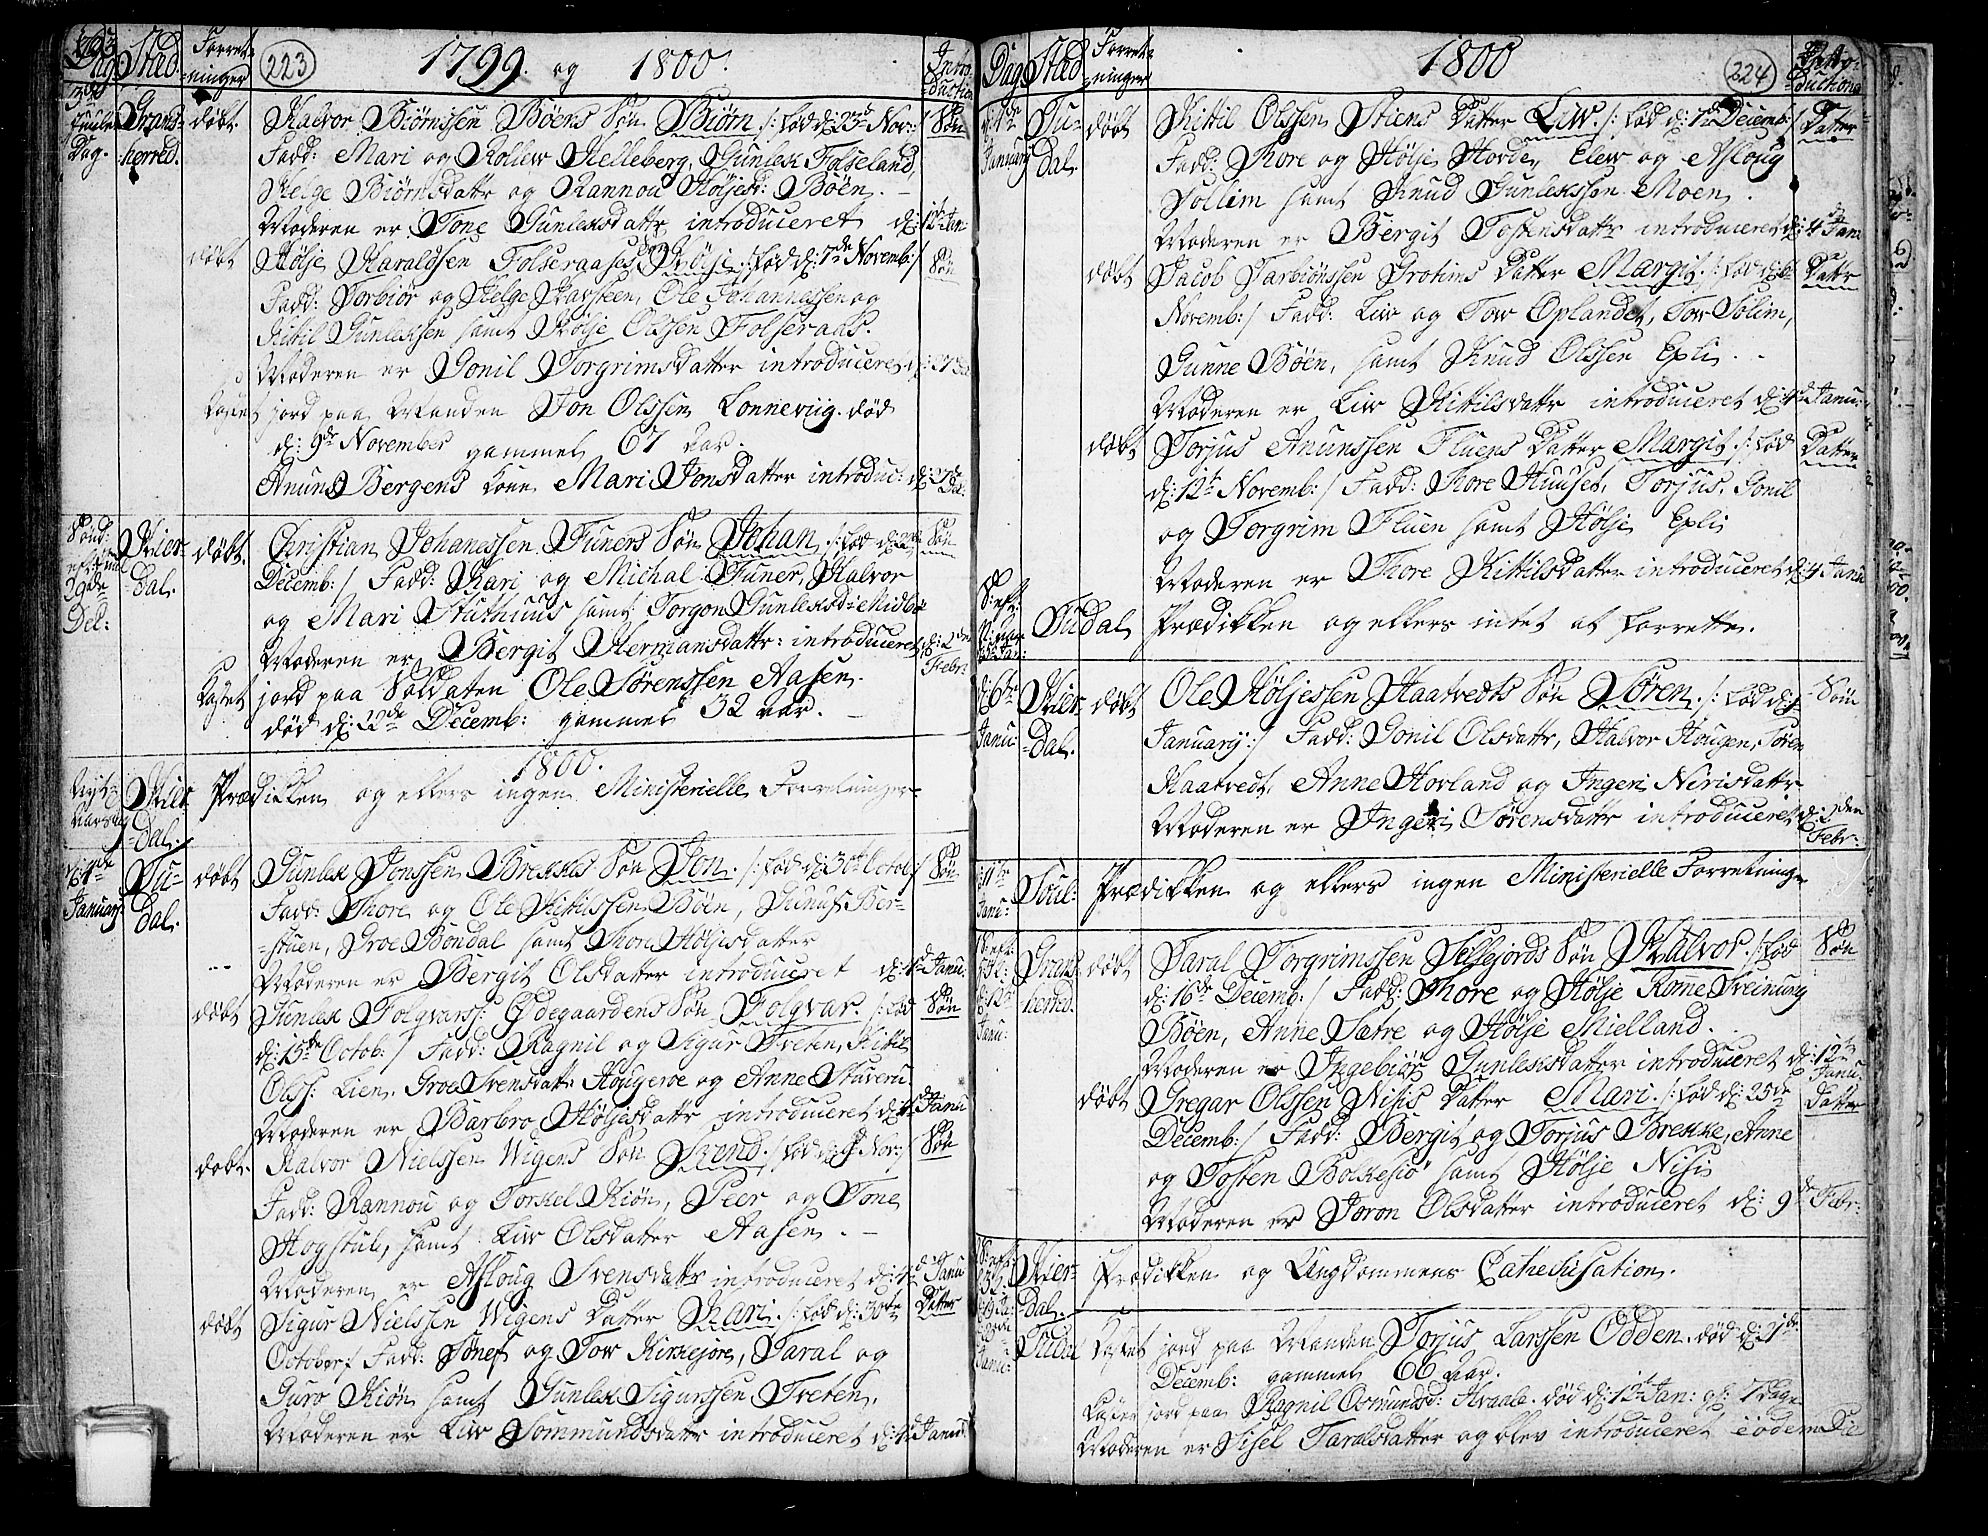 Dag Sted Forret-ninger 223 1799. og 1800. Intro-duction
3de Juule Dag. Grans-herred. døbt Halvor Biørnssen Bøens Søn Biørn /: fød d: 23de Nov: Søn
Fadd: Mari og Rollew Helleberg, Gunlek Folseland,
Helge Biørnsdattr og Rannou Høljesd: Bøen.
Moderen er Tone Gunleksdattr introduceret d: 12te Jan
døbt Hølje Haraldsen Folseraases Søn Hølje /: fød d: 7de Novemb:/ Søn
Fadd: Torbiør og Helge Skarsteen, Ole Johannessen og
Kittil Gunleksen samt Hølje Olssen Folseraas.
Moderen er Gonil Torgrimsdatter introduceret d: 27de
Kastet jord paa Manden Jon Olssen Lonneviig. død
d: 9de November gammel 67 Aar.
Anuns Bergens Kone Mari Jonsdatter introduc: d: 27de
Sønd: 29de Dec: Hier-dal. døbt. Christian Johanessen Funers Søn Johan /: fød d: Søn
Decemb:/ Fadd: Kari og Michal Funer, Halvor
og Mari Stuthuus samt Torgon Gunleksd: Midbøe
Moderen er Bergit Hermansdattr: introduceret d: 2den Febr:
Kastet jord paa Soldaten Ole Sørenssen Aasen.
død d: Decemb: gammel 32 Aar.
1800.
Nyt-Aarsdag Hier-dal. Prædikken og ellers ingen Ministerielle Forretninger
d: 4de January Tu-dal. døbt Gunlek Jonssen Brekkes Søn Jon. /: fød d: 30te Octob:/ Søn
Fadd: Thore og Ole Kittilssen Bøen, Gunuf Ber-
-stuen, Groe Bondal samt Thon Høljesdatter
Moderen er Bergit Olsdatter introduceret d: 4de Janu:
døbt Gunlek Folqvars: Ødegaardens Søn Folqvar. /: fød Søn
d: 15de Octob:/ Fadd: Ragnil og Sigur Treten, Kittil
Olss: Lien, Groe Svensdattr Hougeroe og Anne Stuveru
Moderen er Barbro Høljesdattr introduceret d: 4de Janu
døbt. Halvor Nielssen Wigens Søn Svend. /: fød d: Nov:/ Søn
Fadd: Rannou og Torkel Kiøn, Peer og Tone
Hogstul, samt Liv Olsdatter Aasen.
Moderen er Asloug Svensdattr introduceret d: 4de Janu
døbt Sigur Nielssen Wigens Datter Kari. /: fød d: 30te Datter
October/ Fadd: Tonef og Tov Kirkejore, Taral og
Guro Kiøn samt Gunlek Sigurssen Treten.
Moderen er Liv Sommundsdattr introduceret d: 4de Janu:
Dag Sted Forret-ninger 1800 224 Intro-ductions
d: 4de January Tu-dal. døbt Kittil Olssen Stiens Datter Liv. /: fød d: 1te Decemb:/ Datter
Fadd: Thore og Hølje Hovde, Elev og Asloug
Sollim samt Knud Gunlekssen Moen.
Moderen er Bergit Tostensdattr introduceret d: 4de Janu
døbt Jacob Tarbiønssen Grotins Datter Margit. /: fød d: 6 Dattr
Novemb:/ Fadd: Liv og Tov Oplandet, Tov Solim,
Gunne Bøen, samt Knud Olssen Epli.
Moderen er Liv Kittilsdattr introduceret d: 4de Janu:
døbt Torjus Anunssen Fluens Datter Margit. /: fød Datter
d: 12te Novemb:/ Fadd: Thore Huuset, Torjus, Gonil
og Torgrim Fluen samt Hølje Epli
Moderen er Thore Kittilsdatter introduceret d: 4 Janu
Tudal Prædikken og ellers intet at forrette.
d: 6te Janu: Hier-dal. døbt Ole Høljessen Haatvedts Søn Søren. /: fød d: 1 Søn
January:/ Fadd: Gonil Olsdattr, Halvor Hougen, Søren
Haatvedt, Anne Hovland og Ingeri Nirisdattr
Moderen er Ingeri Sørensdattr introduceret d: 2den Febr:
d: 11te Janu: Soul: Prædikken og ellers ingen Ministerielle Forretning
d: 12te Janu: Grans-herred. døbt Taral Torgrimssen Selfejords Søn Halvor. /: fød Søn
d: 16de Decemb:/ Fadd: Thore og Hølje Rome Sveinung
Bøen, Anne Satre og Hølje Mielland.
Moderen er Ingebiør Gunleksdatter introduceret d: 12te Janu:
døbt Gregar Olssen Nisis Datter Mari. /: fød d: 25de Datter
Decemb:/ Fadd: Bergit og Torjus Brekke, Anne
og Tosten Bolkesiø samt Hølje Nisis
Moderen er Joron Olsdatter introduceret d: 9de Febr:
Hier-dal. Prædikken og Ungdommens Catechisation.
Janu: Tudal Kastet jord paa Manden Torjus Larssen Odden. død d: 21de
Decemb: gammel 66 Aar.
Kastet jord paa Ragnil Osmundsd: Hvaale. død d: 12te Jan: gl: 7 Dage
Moderen er Sisel Taralsdatter og blev introduceret eodem Die